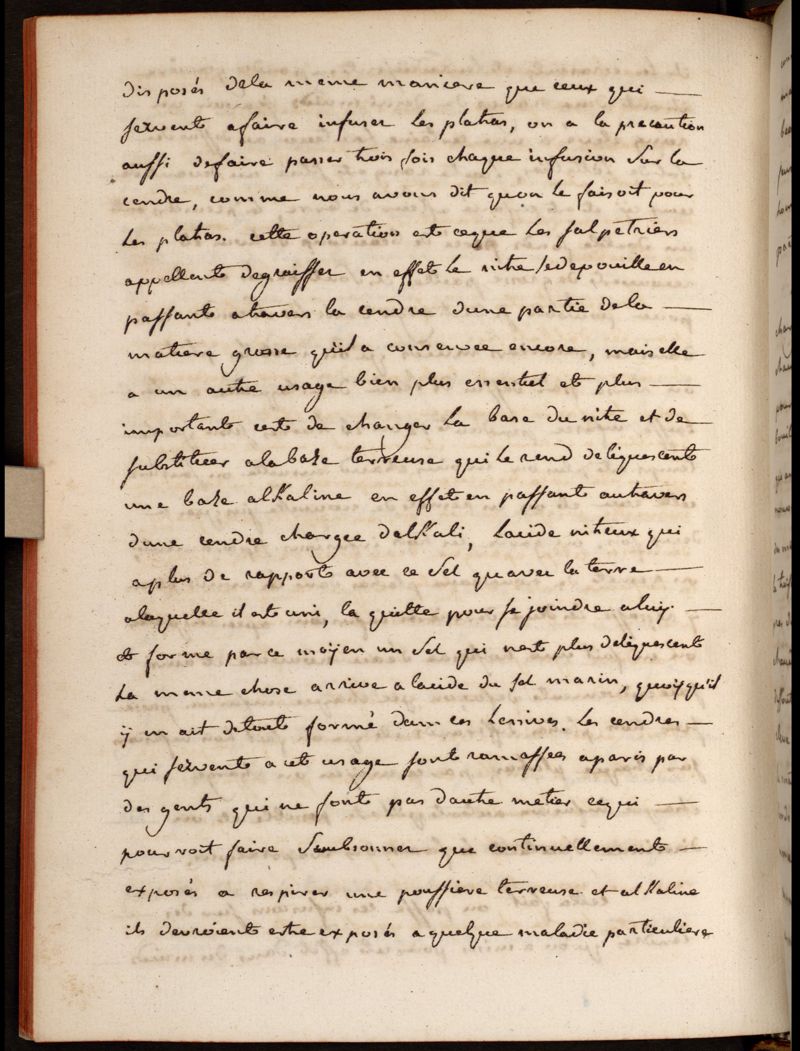 disposés dela meme maniere que ceux qui —
servent afaire infuser les platras, on a la precaution
aussi defaire passer trois fois chaque infusion sur la
cendre, comme nous avons dit quon le faisoit pour
les platras. cette operation est ceque les salpetriers
appellent degraisser en effet le nitre sedepouille en
passant atravers la cendre dune partie dela —
matiere grasse quil a conservée encore, mais elle
a un autre usage bien plus essentiel et plus —
important cest de changer la base du nitre et de
substituer ala base terreuse qui le rend deliquescent
une base alKaline en effet en passant autravers
dune cendre chargée dalKali, lacide nitreux qui
aplus de rapport avec ce sel quavec la terre —
alaquelle il est uni, la quitte pour se joindre aluy. —
et forme par ce moÿen un sel qui nest plus deliquescent
la meme chose arrive a lacide du sel marin, quoyqu'il
ÿ en ait detout formé dans ces lessives. les cendres —
qui servent a cet usage sont ramassées aparis par
des gents qui ne font pas dautre metier cequi —
pourroit faire soubsonner que continuellement —
exposés a respirer une poussiere terreuse et alKaline
ils devroient estre exposés a quelque maladie particuliere